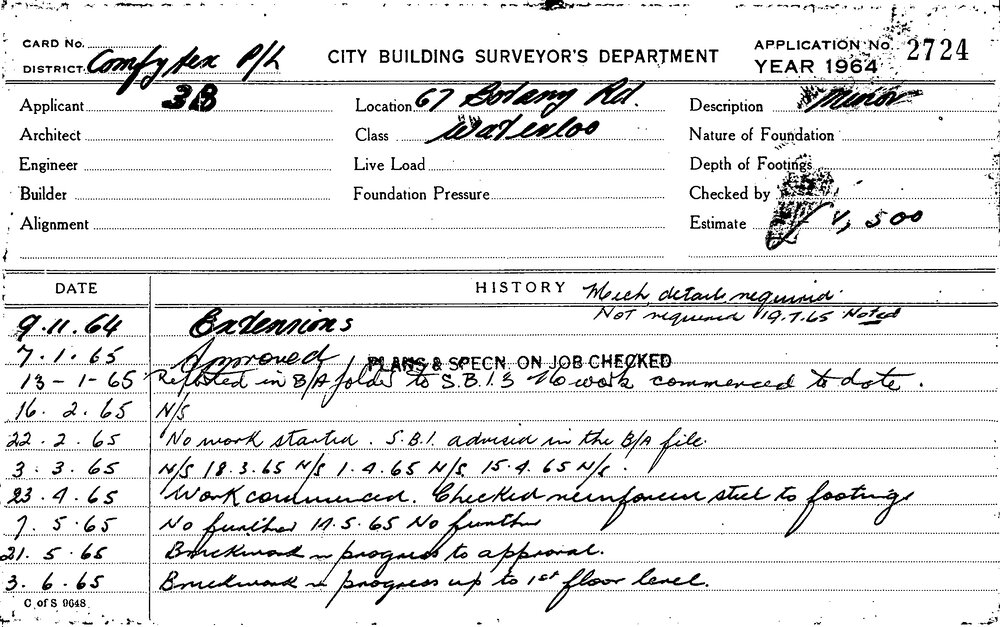 CARD No.
DISTRICT Comfytex P/L
CITY BUILDING SURVEYOR'S DEPARTMENT
APPLICATION No. 2724
YEAR 1964
Applicant 3B
Location 67 Botany Rd.
Description Minor
Architect
Class Waterloo
Nature of Foundation
Engineer
Live Load
Depth of Footings
Builder
Foundation Pressure
Checked by
Alignment
Estimate ,500
DATE
HISTORY
Mech. details required.
Not required 19.7.65 Noted
9.11.64 Extensions
7.1.65 Approved
PLANS & SPECN. ON JOB CHECKED
13-1-65 Reported in B/A folder to S.B.I. 3 No work commenced to date.
16.2.65 N/S
22.2.65 No work started. S.B.I. advised in the B/A file.
3.3.65 N/S 18.3.65 N/S 1.4.65 N/S 15.4.65 N/S.
23.4.65 Work commenced. Checked reinforcen steel to footings
7.5.65 No further 17.5.65 No further
21.5.65 Brickwork in progress to approval.
3.6.65 Brickwork in progress up to 1st floor level.
C of S 9648